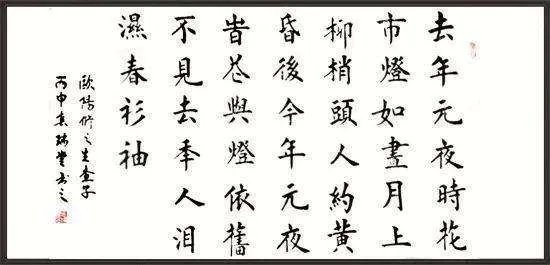 去年元夜時花
市燈如晝月上
柳梢頭人約黃
昏後今年元夜
旹與燈依舊
不見去秊人泪
濕春衫袖
歐陽修之生查子
丙申書之